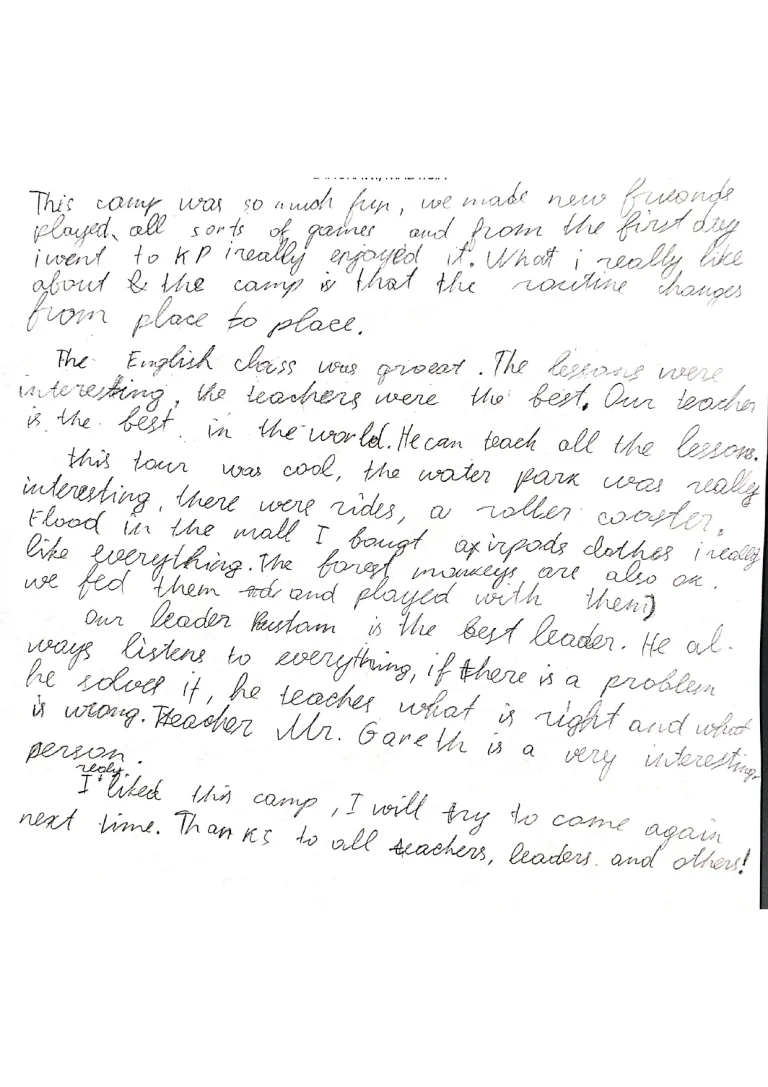 This camp was so much fun, we made new frieonds
played, all sorts of games and from the first day
i went to KP i really enjoyed it. What i really like
about the camp is that the routine changes
from place to place.
The English class was greeat. The lessons were
interesting, the teachers were the best. Our teacher
is the best in the world. He can teach all the lessons.
this tour was cool, the water park was really
interesting, there were rides, a roller coaster.
Flood in the mall I bougt airpods clothes i really
like everything. The forest monkeys are also ok.
we fed them and played with them)
Our leader Rustam is the best leader. He al-
ways listens to everything, if there is a problem
he solves it, he teaches what is right and what
is wrong. Teacher Mr. Gareth is a very interesting
person.
I realy liked this camp, I will try to come again
next time. Thanks to all teachers, leaders and others!